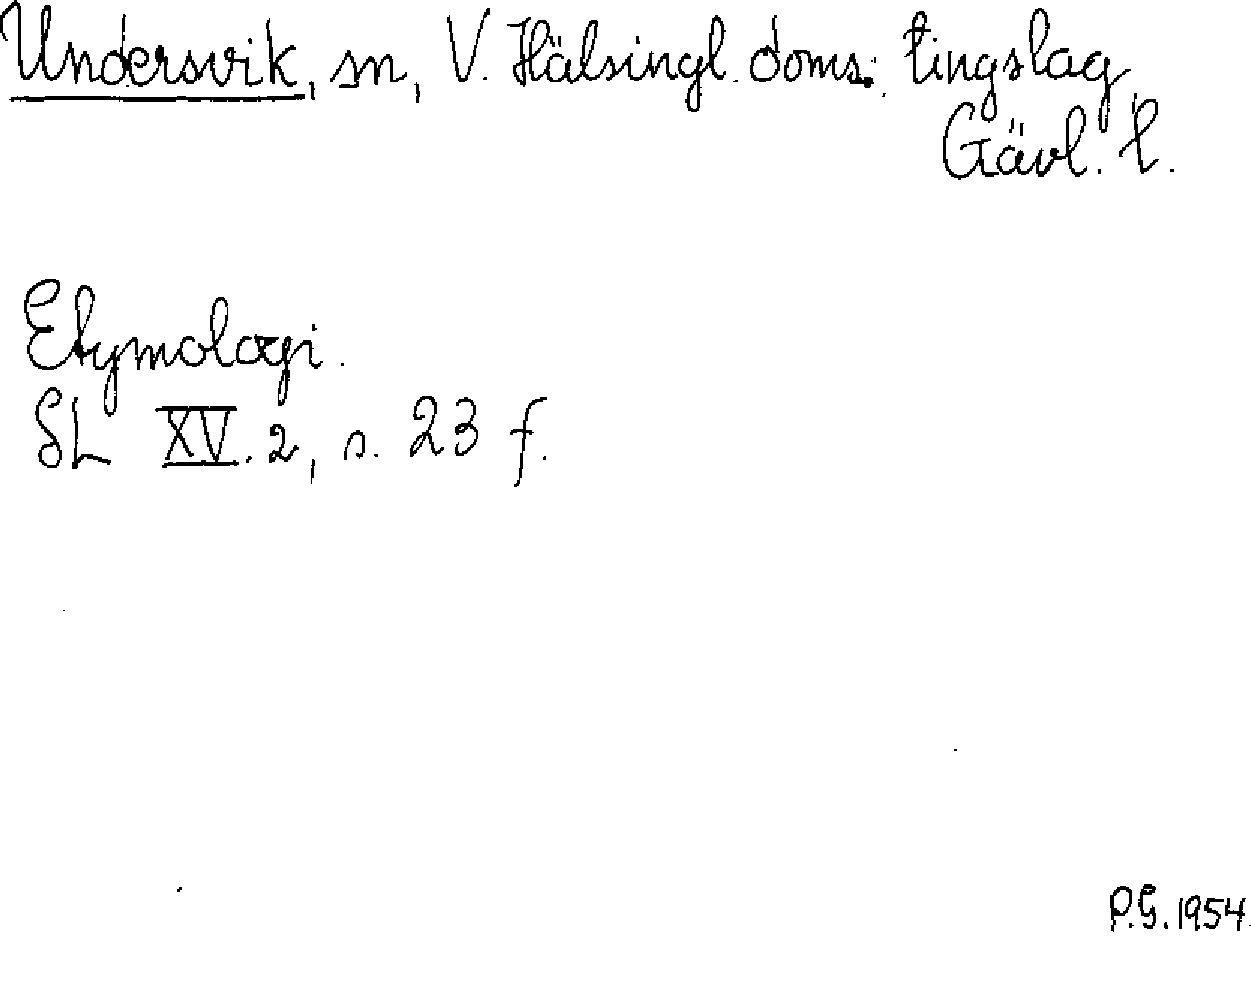 Undersvik, sn, V. Hälsingl. doms. tingslag,
Gävl. l.
Etymologi.
SL XV.2, s. 23 f.
P.G. 1954.